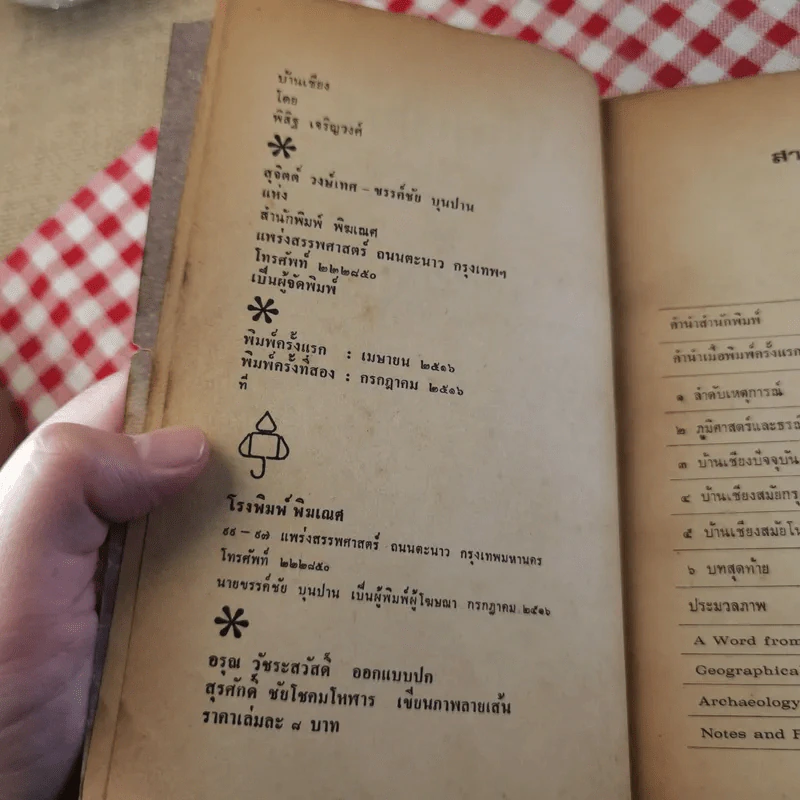 บ้านเชียง
โดย
พิสิฐ เจริญวงศ์
สุจิตต์ วงษ์เทศ – ขรรค์ชัย บุนปาน
แห่ง
สำนักพิมพ์ พิฆเณศ
แพร่งสรรพศาสตร์ ถนนตะนาว กรุงเทพฯ
โทรศัพท์ ๒๒๒๘๕๐
เป็นผู้จัดพิมพ์
พิมพ์ครั้งแรก : เมษายน ๒๕๑๖
พิมพ์ครั้งที่สอง : กรกฎาคม ๒๕๑๖
ที่
โรงพิมพ์ พิฆเณศ
แพร่งสรรพศาสตร์ ถนนตะนาว กรุงเทพมหานคร
โทรศัพท์ ๒๒๒๘๕๐
นายขรรค์ชัย บุนปาน เป็นผู้พิมพ์ผู้โฆษณา กรกฎาคม ๒๕๑๖
อรุณ วัชระสวัสดิ์ ออกแบบปก
สุรศักดิ์ ชัยโชคมโหฬาร เขียนภาพลายเส้น
ราคาเล่มละ ๘ บาท
สา
คำนำสำนักพิมพ์
คำนำเมื่อพิมพ์ครั้งแรก
๑ ลำดับเหตุการณ์
๒ ภูมิศาสตร์และธรณี
๓ บ้านเชียงปัจจุบัน
๔ บ้านเชียงสมัยกรุ
๕ บ้านเชียงสมัยโบ
๖ บทสุดท้าย
ประมวลภาพ
A Word from
Geographica
Archaeology
Notes and